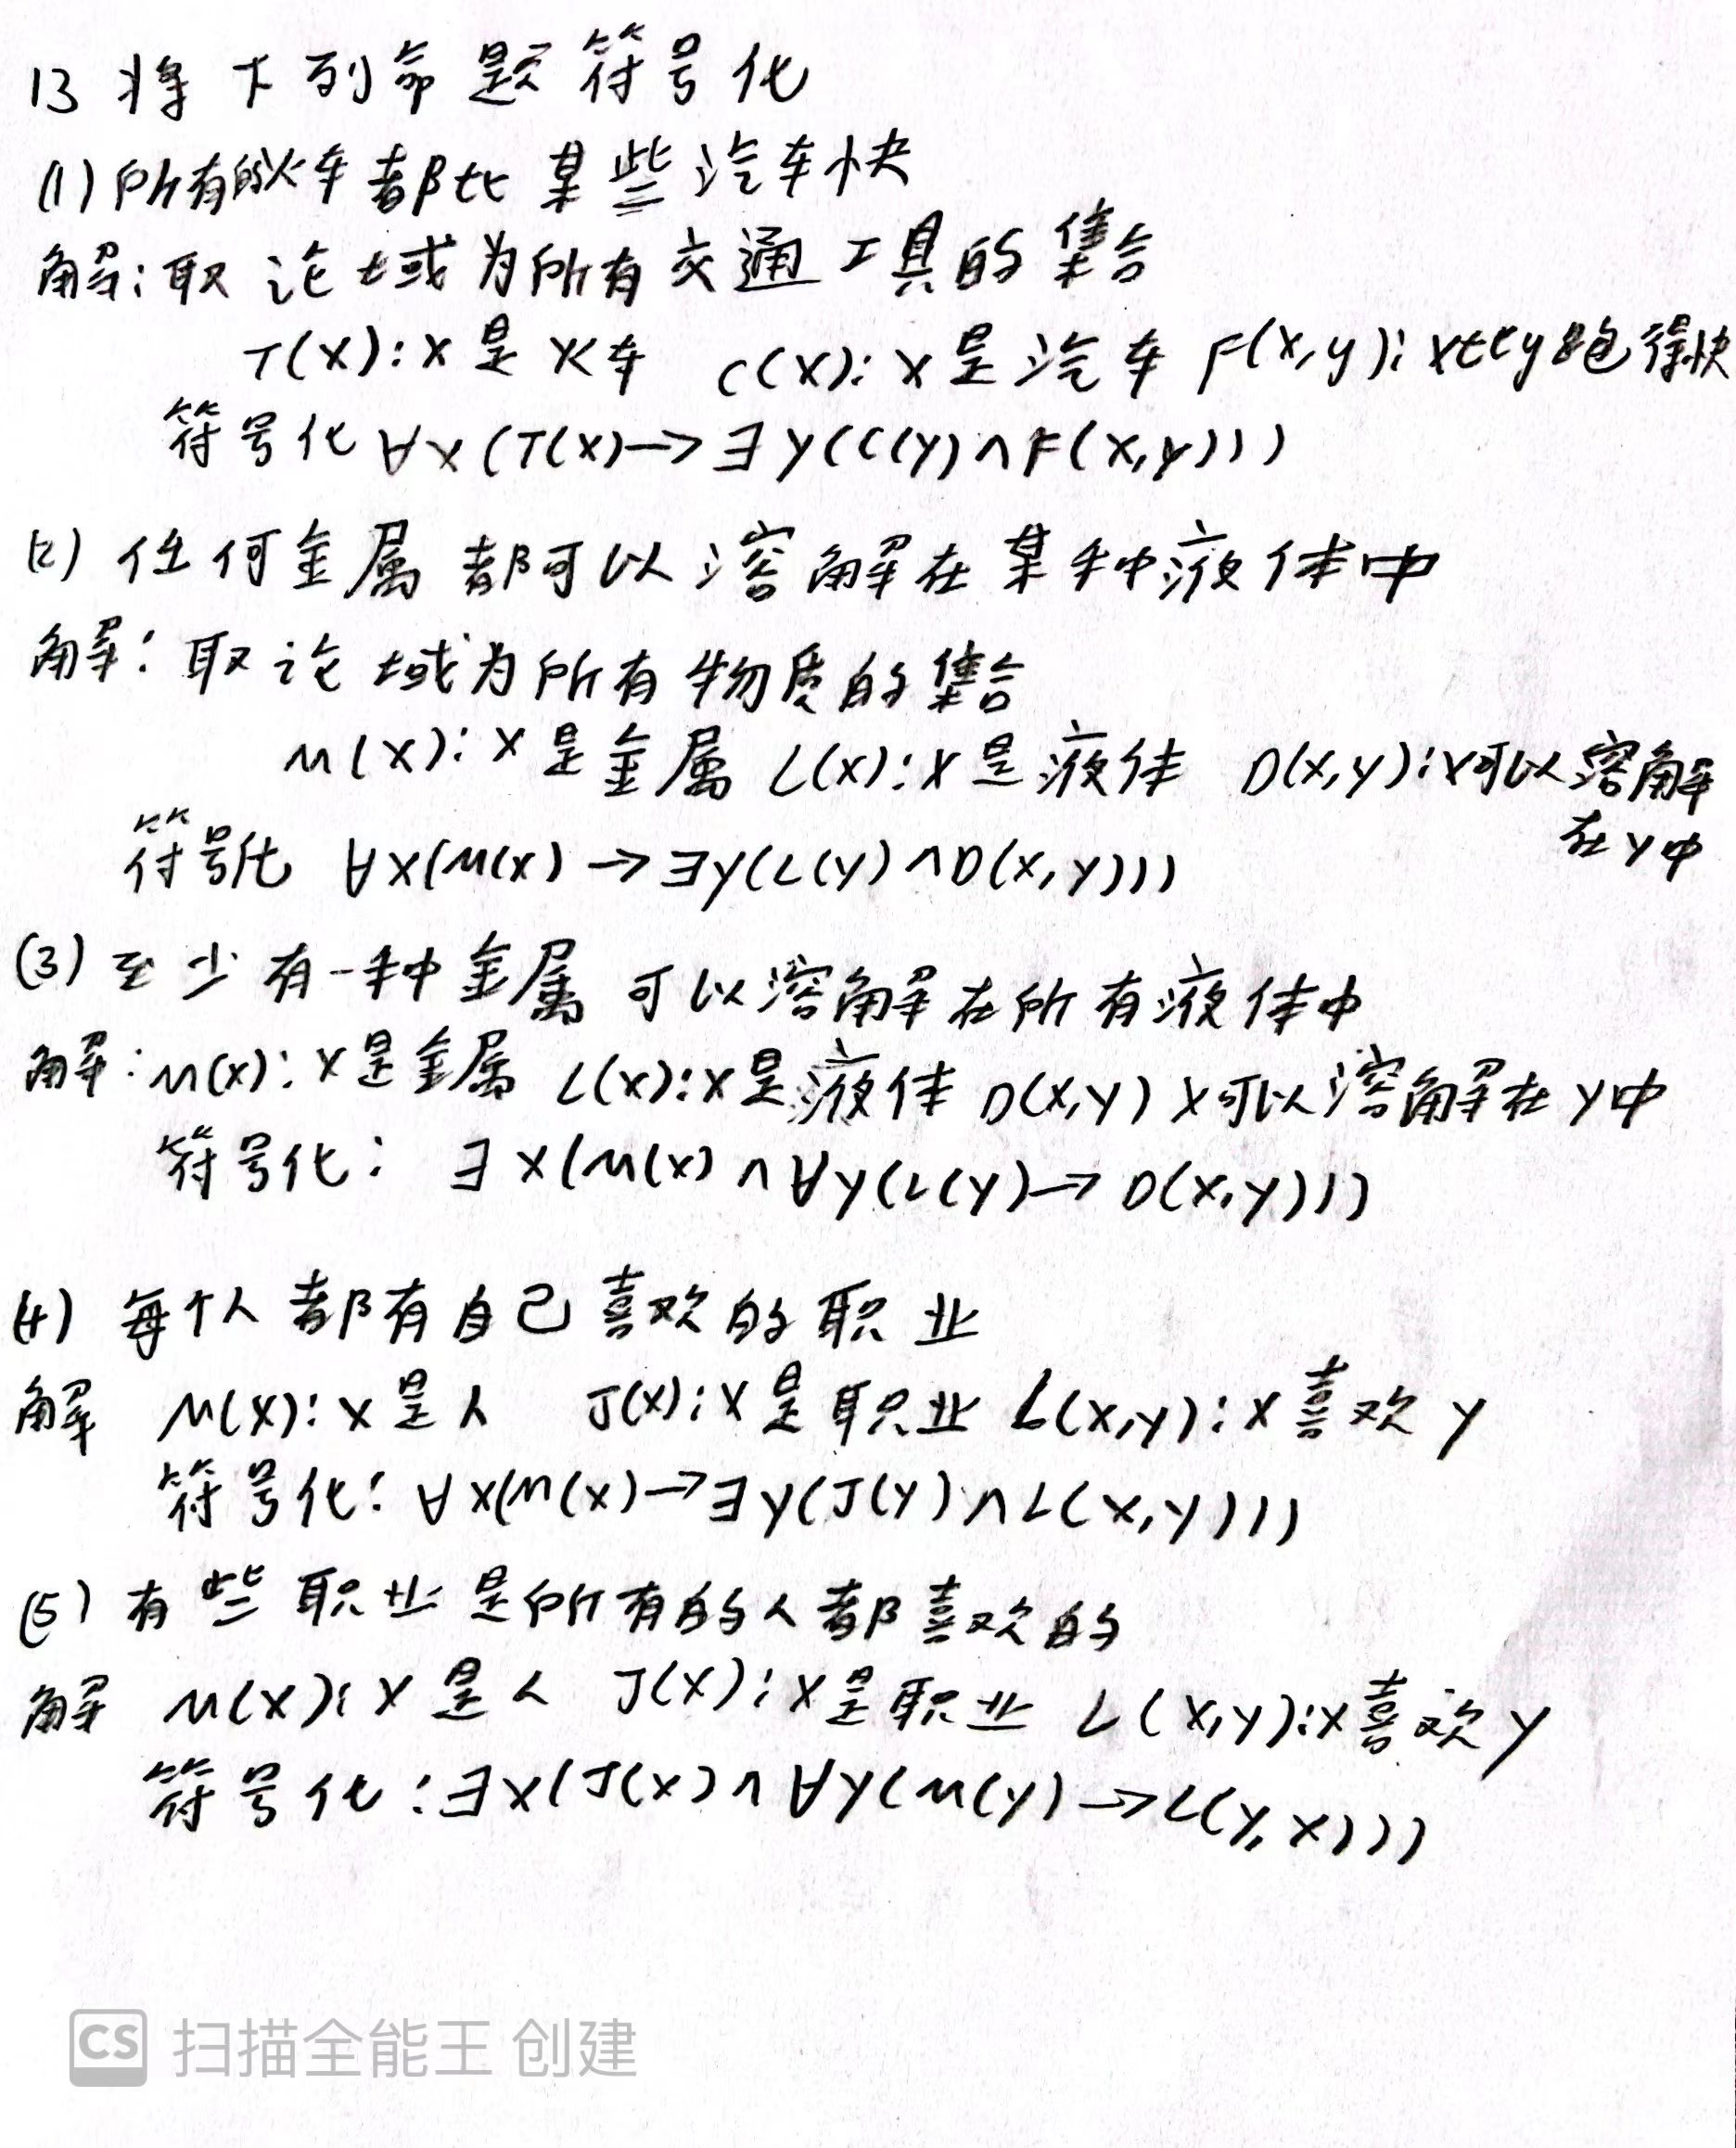 13 将下列命题符号化
(1) 所有的火车都比某些汽车快
解:取论域为所有交通工具的集合
T(x):x是火车 C(x):x是汽车 F(x,y):x比y跑得快
符号化 ∀x(T(x)→∃y(C(y)∧F(x,y)))
(2) 任何金属都可以溶解在某种液体中
解:取论域为所有物质的集合
M(x):x是金属 L(x):x是液体 D(x,y):x可以溶解
在y中
符号化 ∀x(M(x)→∃y(L(y)∧D(x,y)))
(3) 至少有一种金属可以溶解在所有液体中
解:M(x):x是金属 L(x):x是液体 D(x,y) x可以溶解在y中
符号化: ∃x(M(x)∧∀y(L(y)→D(x,y)))
(4) 每个人都有自己喜欢的职业
解 M(x):x是人 J(x):x是职业 L(x,y):x喜欢y
符号化:∀x(M(x)→∃y(J(y)∧L(x,y)))
(5) 有些职业是所有的人都喜欢的
解 M(x):x是人 J(x):x是职业 L(x,y):x喜欢y
符号化:∃x(J(x)∧∀y(M(y)→L(y,x)))
CS 扫描全能王 创建